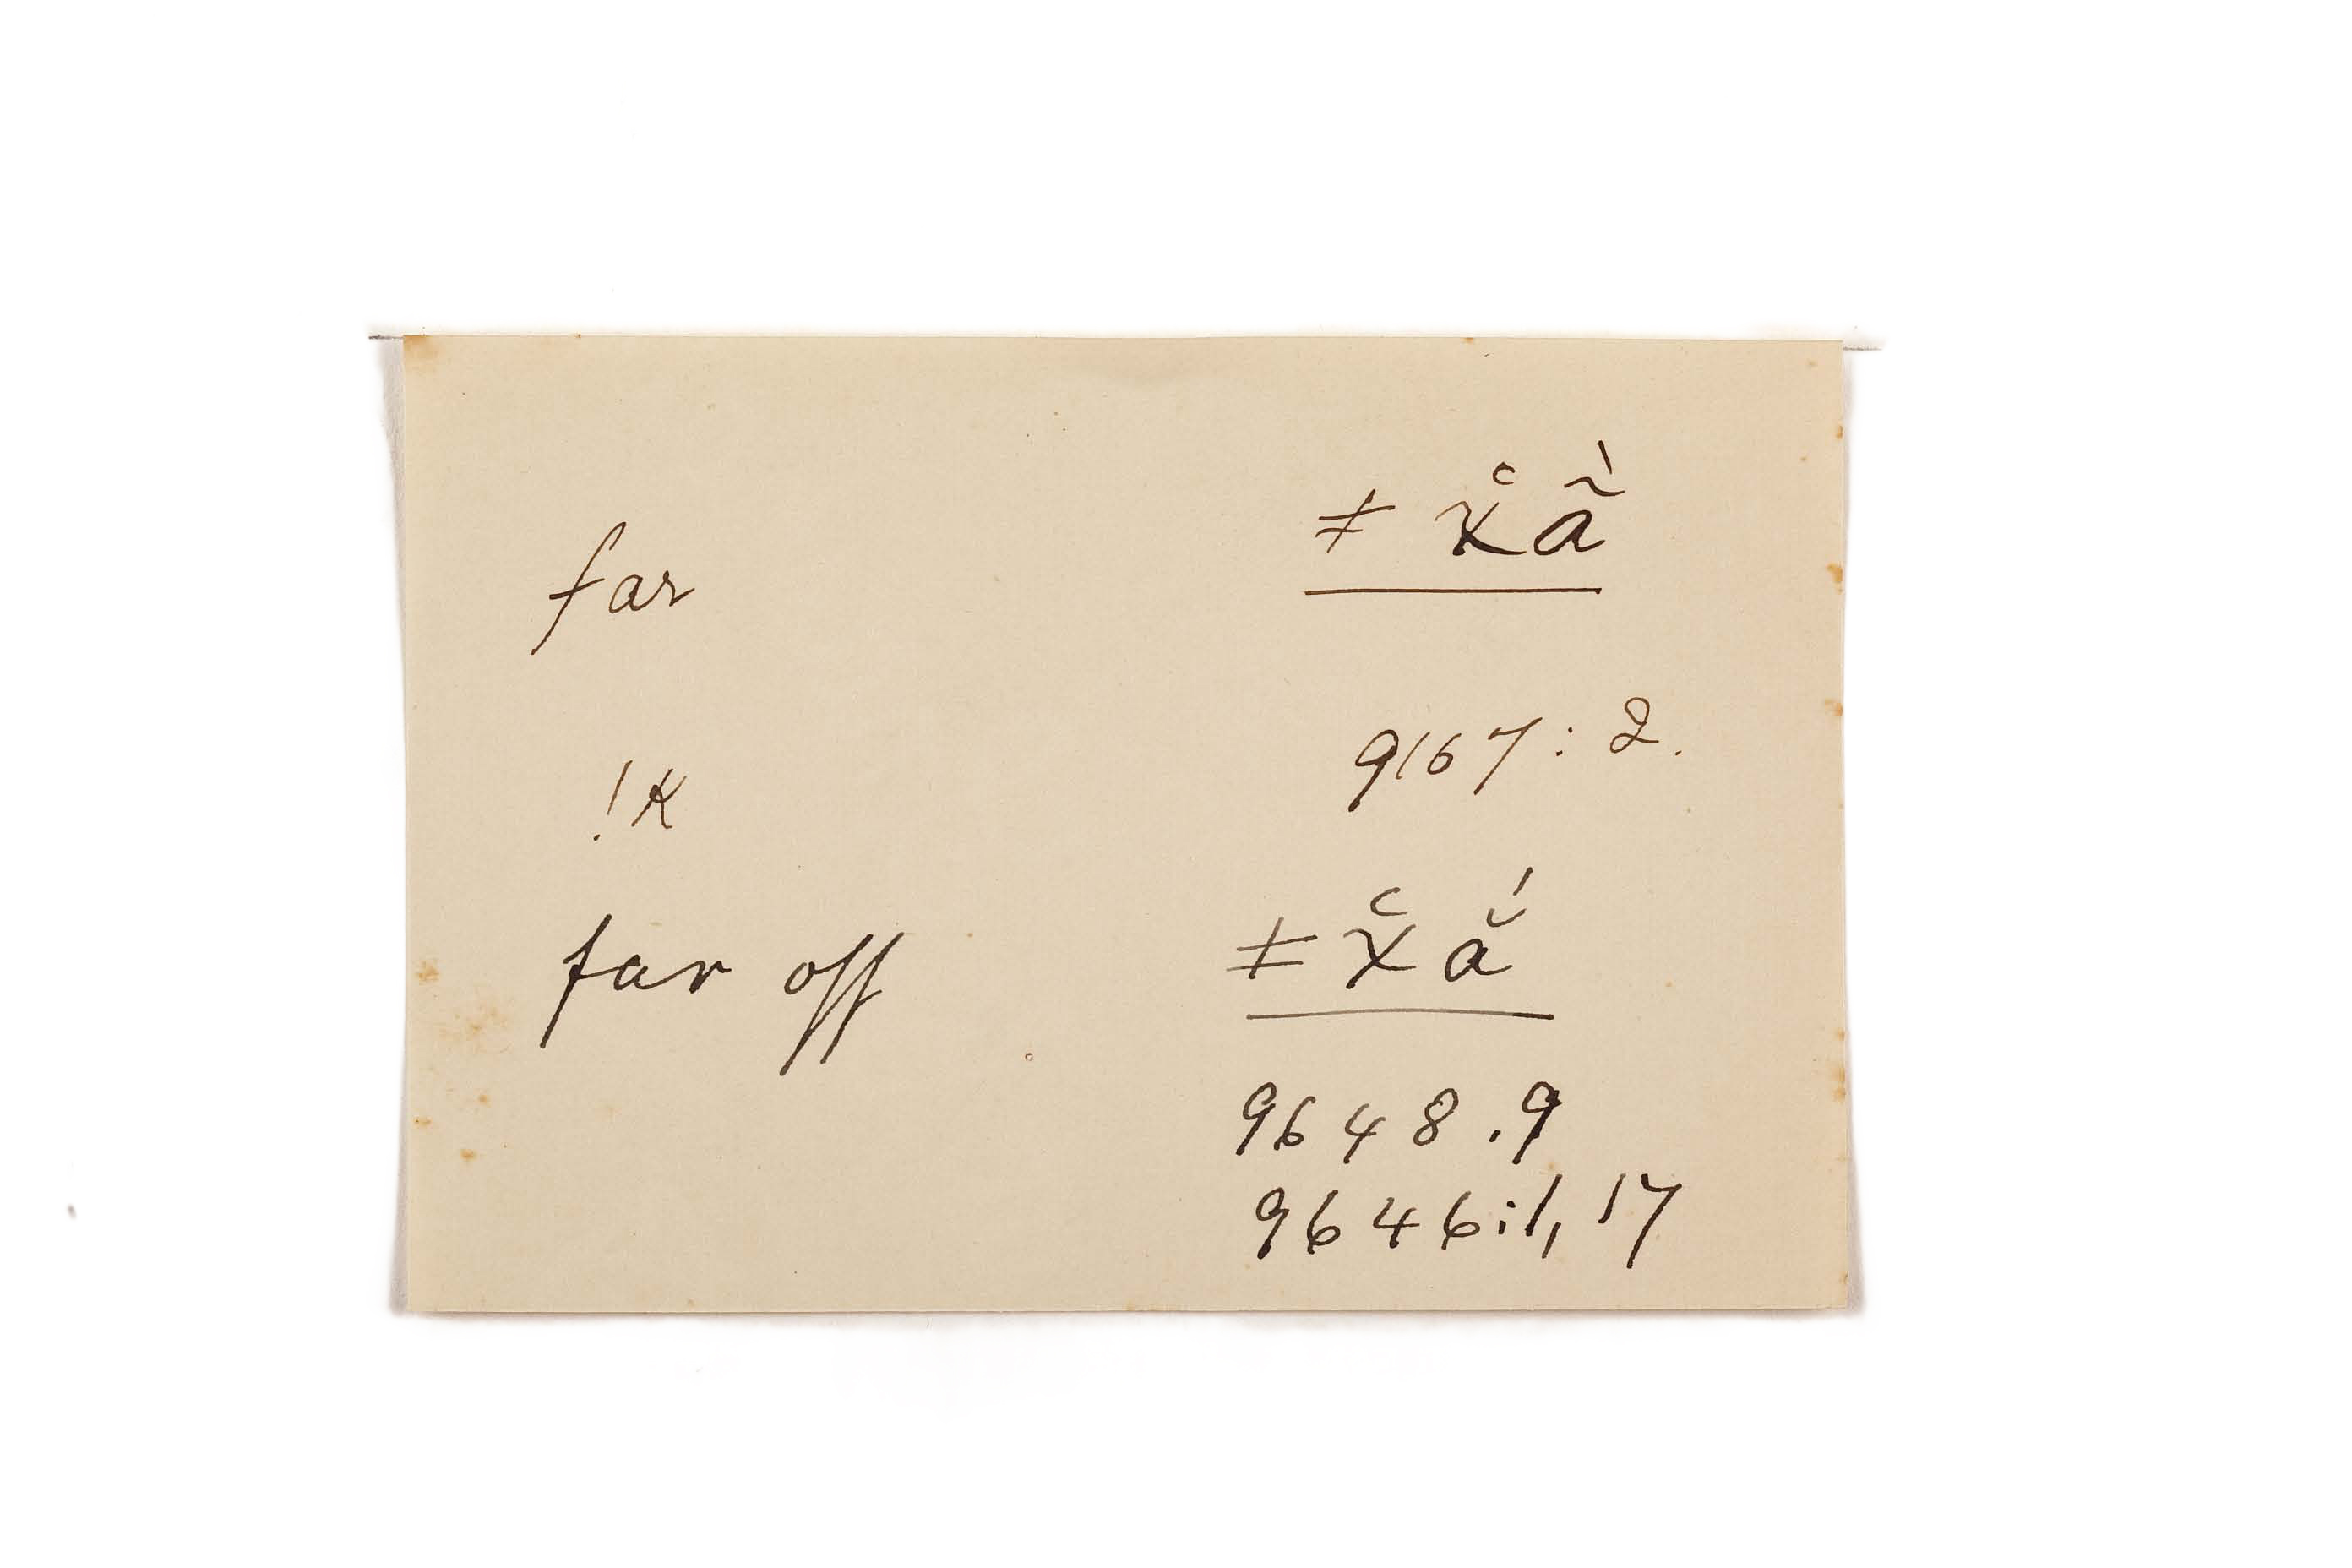 far ǂ χ̔ã̀
9167: 2.
!K
far off ǂ χ̔ ắ
9648.9
9646:1, 17